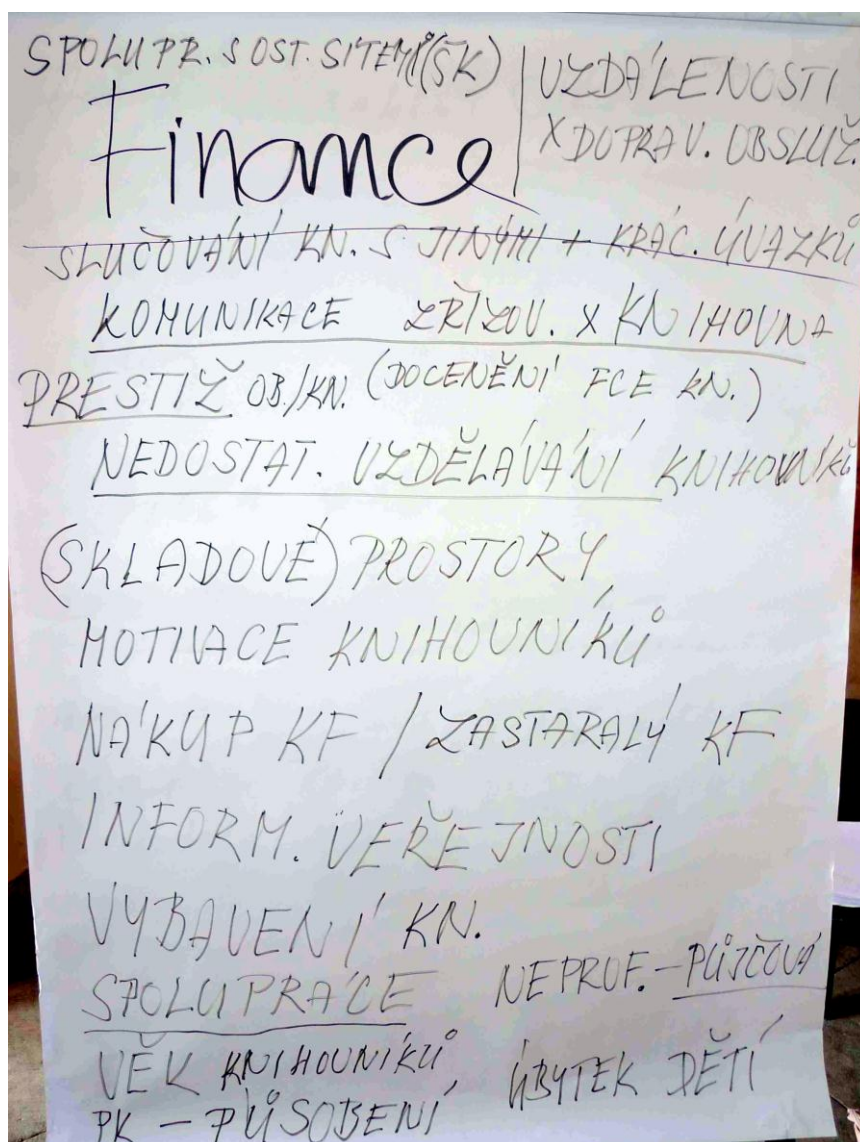 SPOLUPR. S OST. SÍTĚMI (ŠK)
VZDÁLENOSTI
X DOPRAV. OBSLUŽ.
Finance
SLUČOVÁNÍ KN. S JINÝMI + KRÁC. ÚVAZKŮ
KOMUNIKACE ZŘIZOV. X KNIHOVNA
PRESTIŽ OB./KN. (DOCENĚNÍ FCE KN.)
NEDOSTAT. VZDĚLÁVÁNÍ KNIHOVNÍKŮ
(SKLADOVÉ) PROSTORY
MOTIVACE KNIHOVNÍKŮ
NÁKUP KF / ZASTARALÝ KF
INFORM. VEŘEJNOSTI
VYBAVENÍ KN.
SPOLUPRÁCE
NEPROF. – PŮJČOVÁ
VĚK KNIHOVNÍKŮ
ÚBYTEK DĚTÍ
PK – PŮSOBENÍ